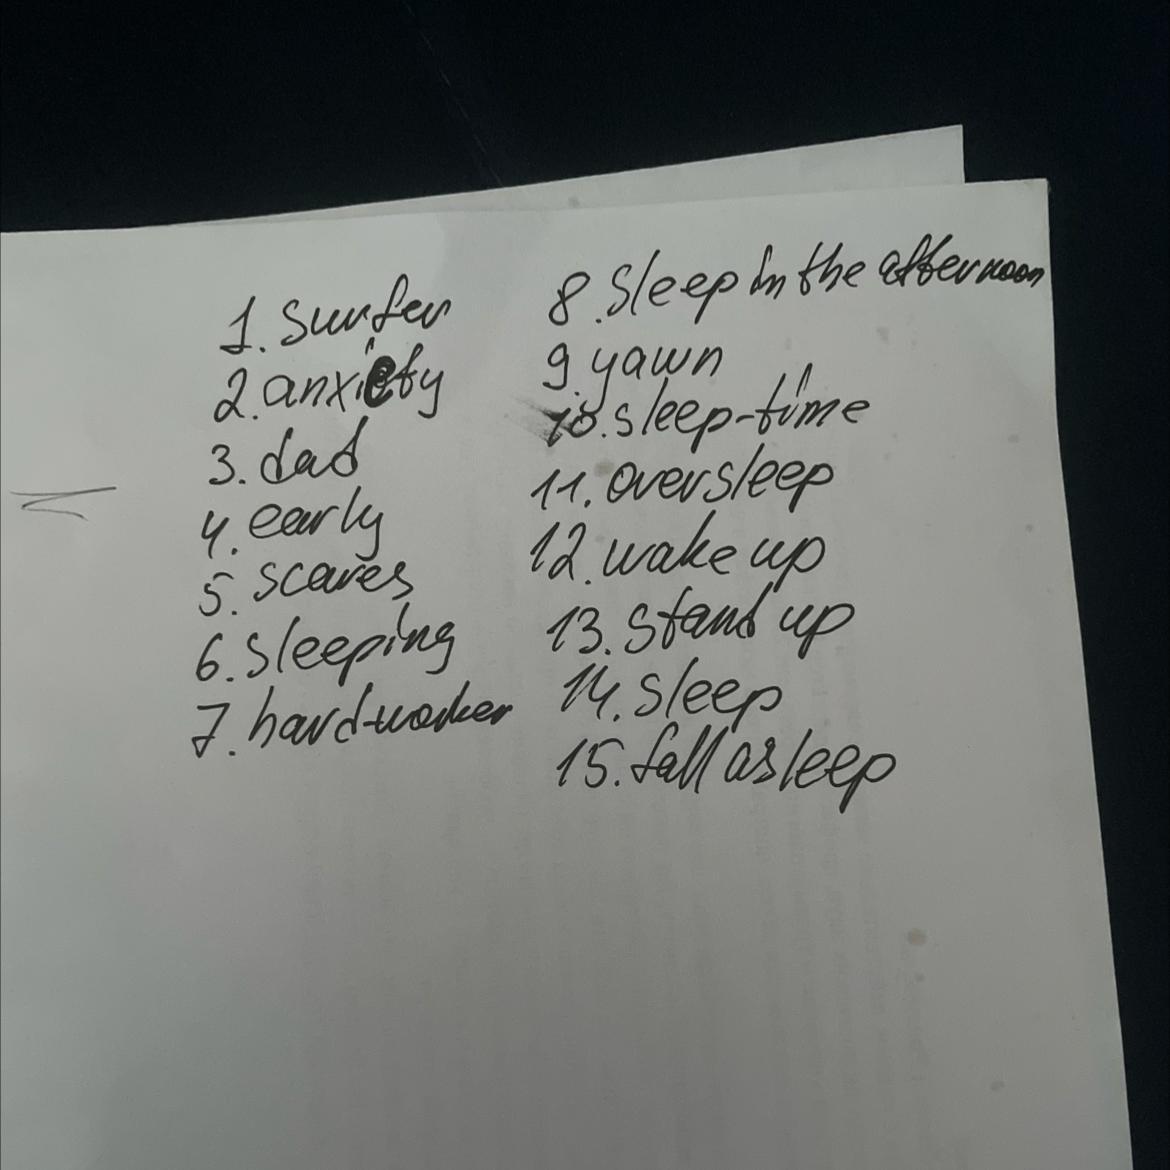 1. surfer
2. anxiety
3. dad
4. early
5. scares
6. sleeping
7. hard-worker
8. Sleep in the afternoon
9. yawn
10. sleep-time
11. oversleep
12. wake up
13. stand up
14. sleep
15. fall asleep